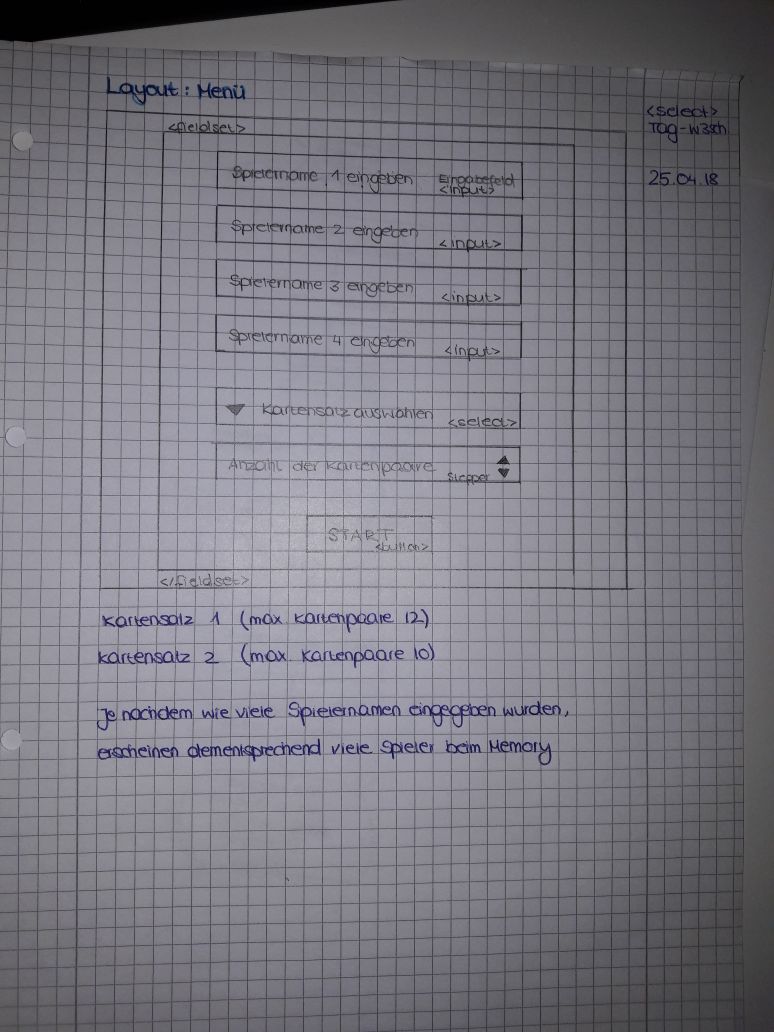 Layout: Menü
<select>
Tag-W3sch
25.04.18
<fieldset>
Spielername 1 eingeben Eingabefeld
<input>
Spielername 2 eingeben <input>
Spielername 3 eingeben <input>
Spielername 4 eingeben <input>
Kartensatz auswählen <select>
Anzahl der Kartenpaare Stepper
START
<button>
</fieldset>
Kartensatz 1 (max Kartenpaare 12)
Kartensatz 2 (max. Kartenpaare 10)
Je nachdem wie viele Spielernamen eingegeben wurden,
erscheinen dementsprechend viele Spieler beim Memory